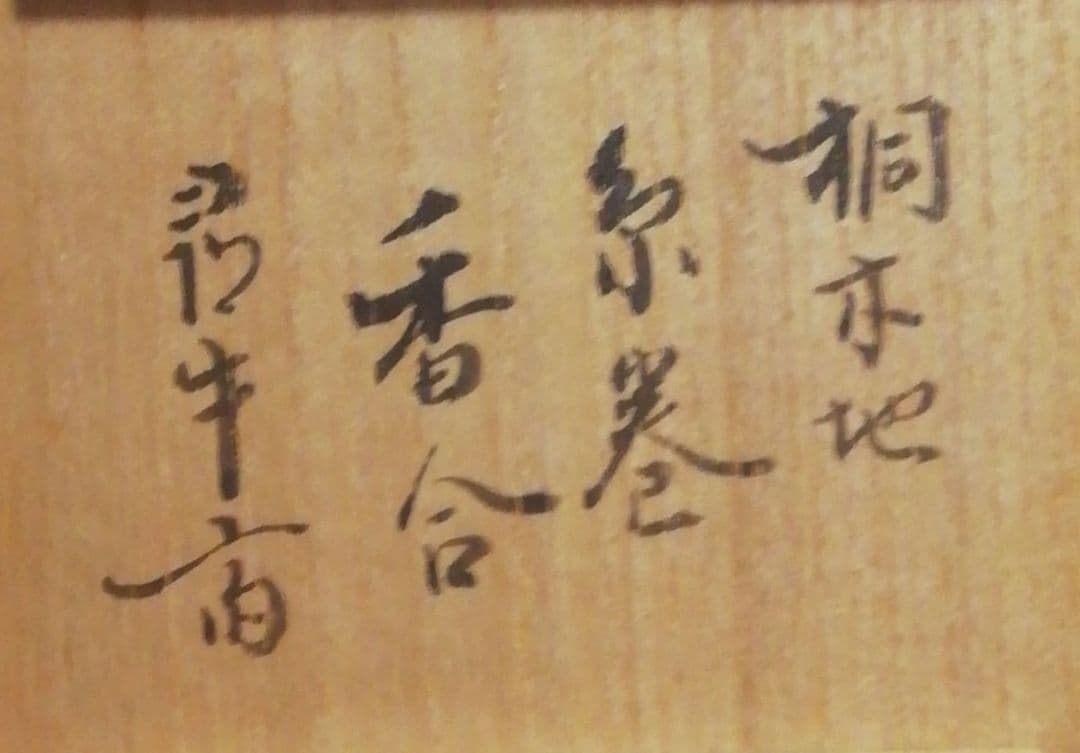 桐木地
糸巻
香合
尋牛斎